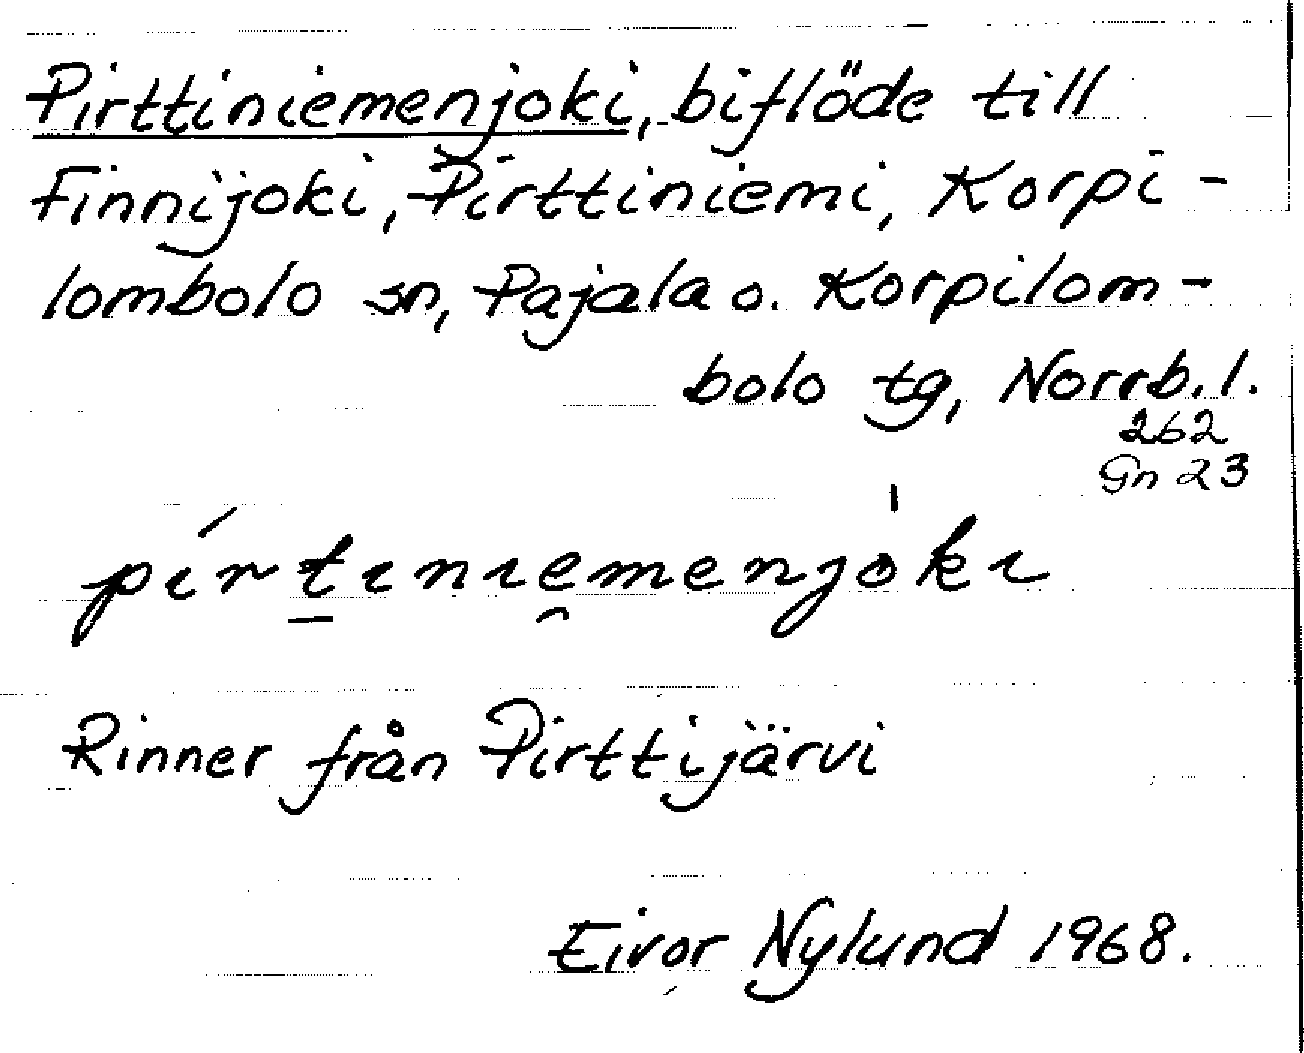 Pirttiniemenjoki, biflöde till
Finnijoki, Pirttiniemi, Korpi-
lombolo sn, Pajala o. Korpilom-
bolo tg, Norrb. l.
262
Gn 23
pírt̲ınıe̯menjo̍kı
Rinner från Pirttijärvi
Eivor Nylund 1968.